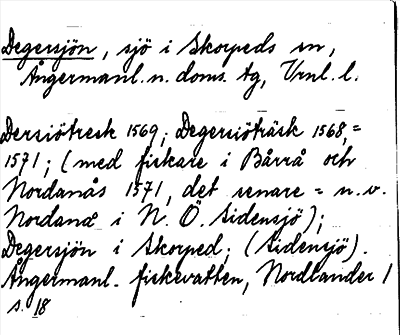 Degersjön, sjö i Skorpeds sn,
Ångermanl. n. doms. tg, Vrnl. l.
Dersiötresk 1569; Degersiöträsk 1568,=
1571; (med fiskare i Bårrå och
Nordanås 1571, det senare = n.v.
Nordanå i N. Ö. Sidensjö);
Degersjön i Skorped; (Sidensjö).
Ångermanl. fiskevatten, Nordlander 1
s. 18